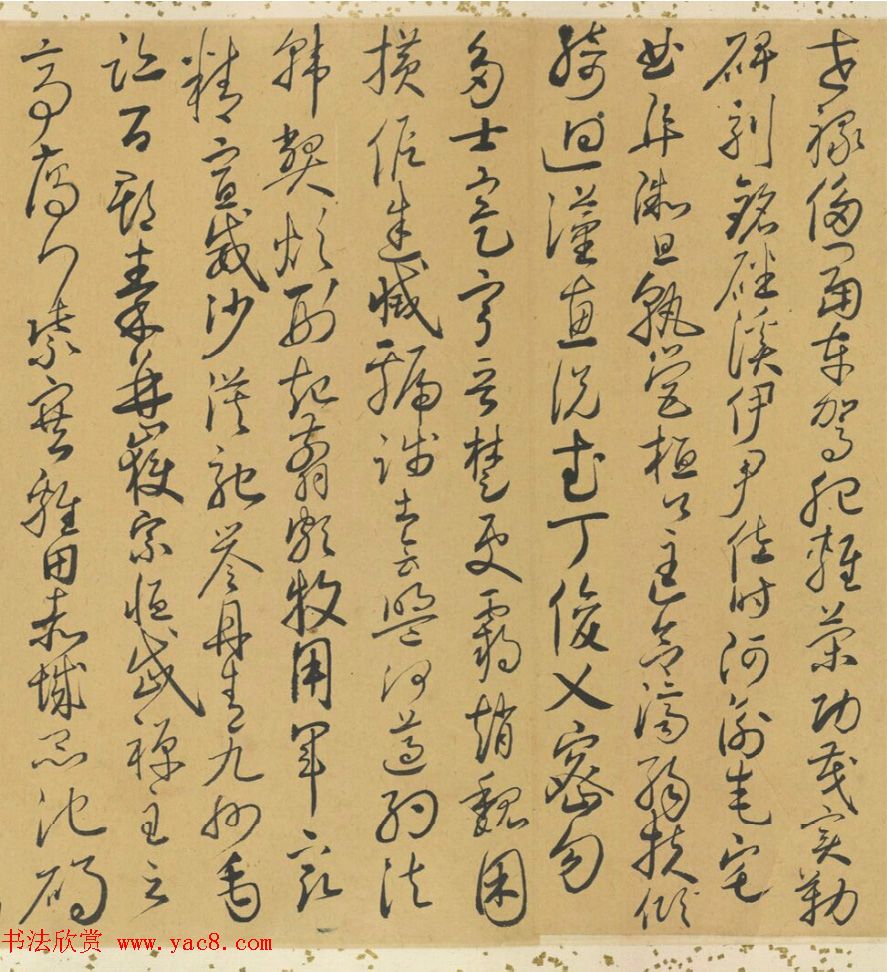 世祿侈富車駕肥輕策功茂實勒
碑刻銘磻溪伊尹佐時阿衡奄宅
曲阜微旦孰營桓公匡合濟弱扶傾
綺迴漢惠說武丁俊乂密勿
多士寔寧晉楚更霸趙魏困
橫假途滅虢踐土會盟何遵約法
韓弊煩刑起翦頗牧用軍最
精宣威沙漠馳譽丹青九州禹
跡百郡秦并嶽宗恒岱禪主云
亭雁門紫塞雞田赤城昆池碣
书法欣赏 www.yac8.com